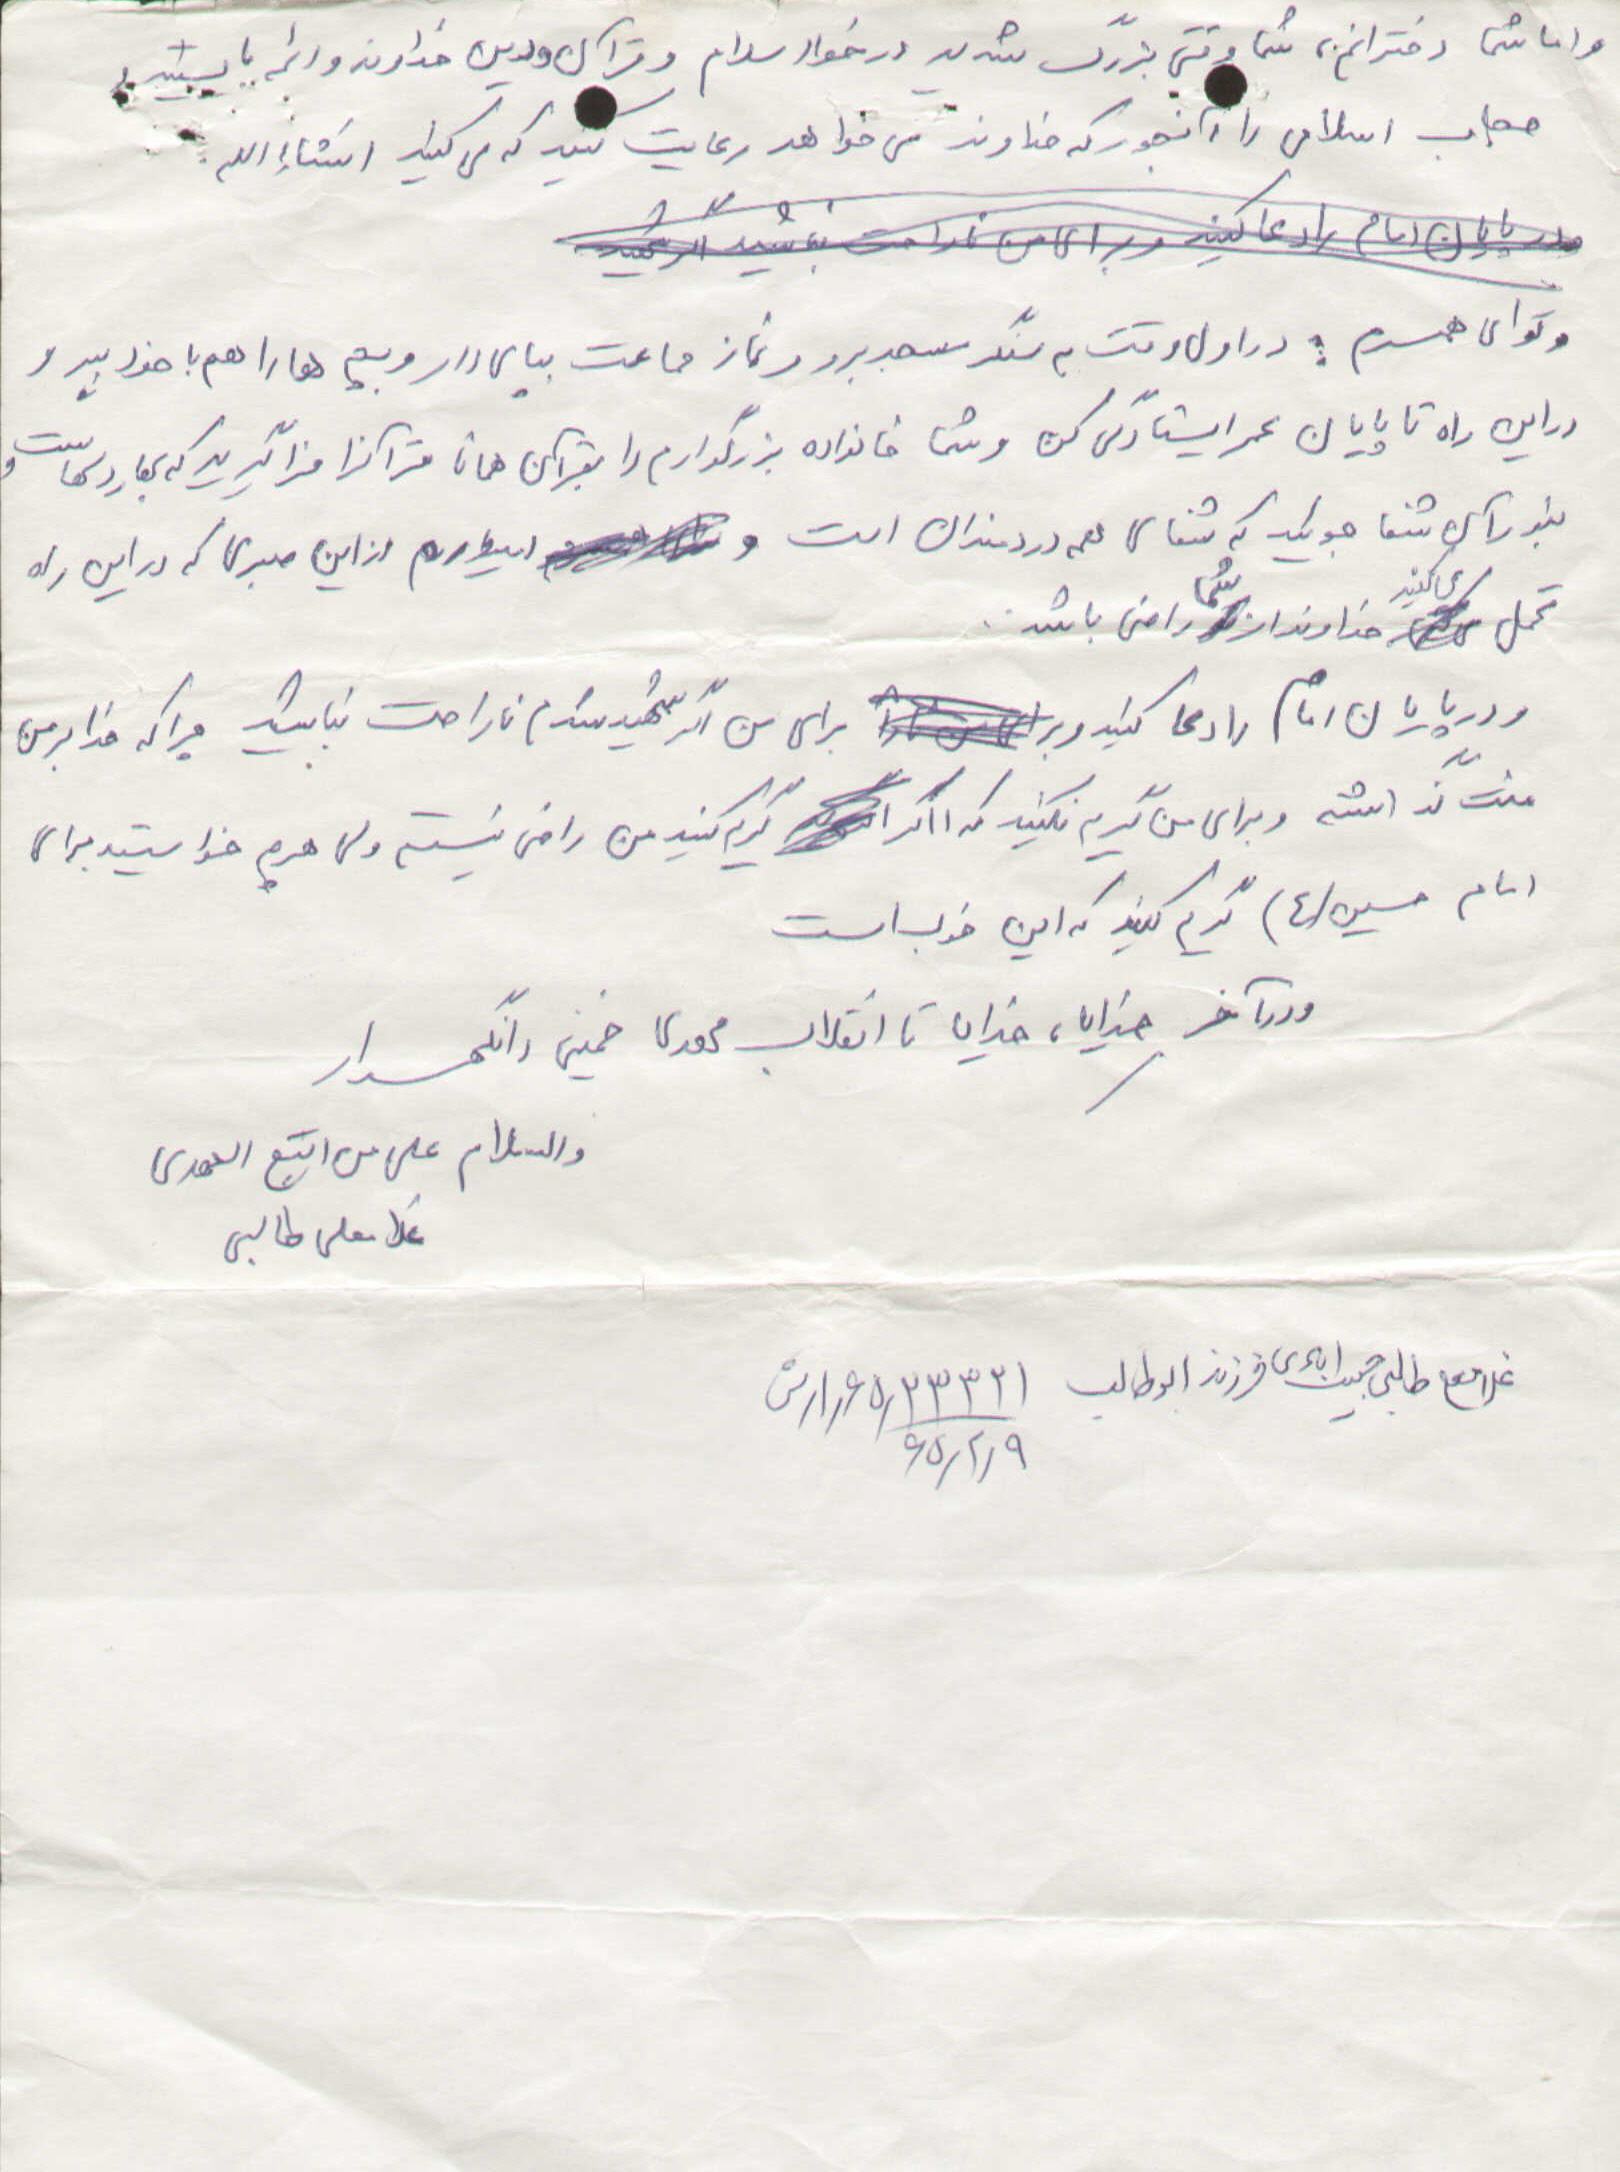 و اما شما دخترانم، شما وقتی بزرگ شدید در خط اسلام و قرآن و دین خداوند و ائمه بایستید و
حجاب اسلامی را آنجور که خداوند می خواهد رعایت کنید که می کنید انشاءالله.
و در پایان امام را دعا کنید و برای من ناراحت نباشید اگر شهید
و تو ای همسرم : در اول وقت به سنگر مسجد برو و نماز جماعت بپای دار و بچه ها را هم با خود ببر و
در این راه تا پایان عمر ایستادگی کن و شما خانواده بزرگوارم را بقرآن همانا قرآن را فراگیرید که بهار دلهاست و
بنور آن شفا جوئید که شفای همه دردمندان است و امیدوارم از این صبری که در این راه
تحمل می کنید خداوند از شما راضی باشد.
و در پایان امام را دعا کنید و برای من اگر شهید شدم ناراحت نباشید چرا که خدا بر من
منت گذاشته و برای من گریه نکنید که اگر گریه کنید من راضی نیستم ولی هرچه خواستید برای
امام حسین (ع) گریه کنید که این خوب است
و در آخر خدایا، خدایا تا انقلاب مهدی خمینی را نگهدار
والسلام علی من اتبع الهدی
غلامعلی طالبی
غلامعلی طالبی حبیب آبادی فرزند ابوطالب ۲۳۳۲۱
۶۵/۲/۹